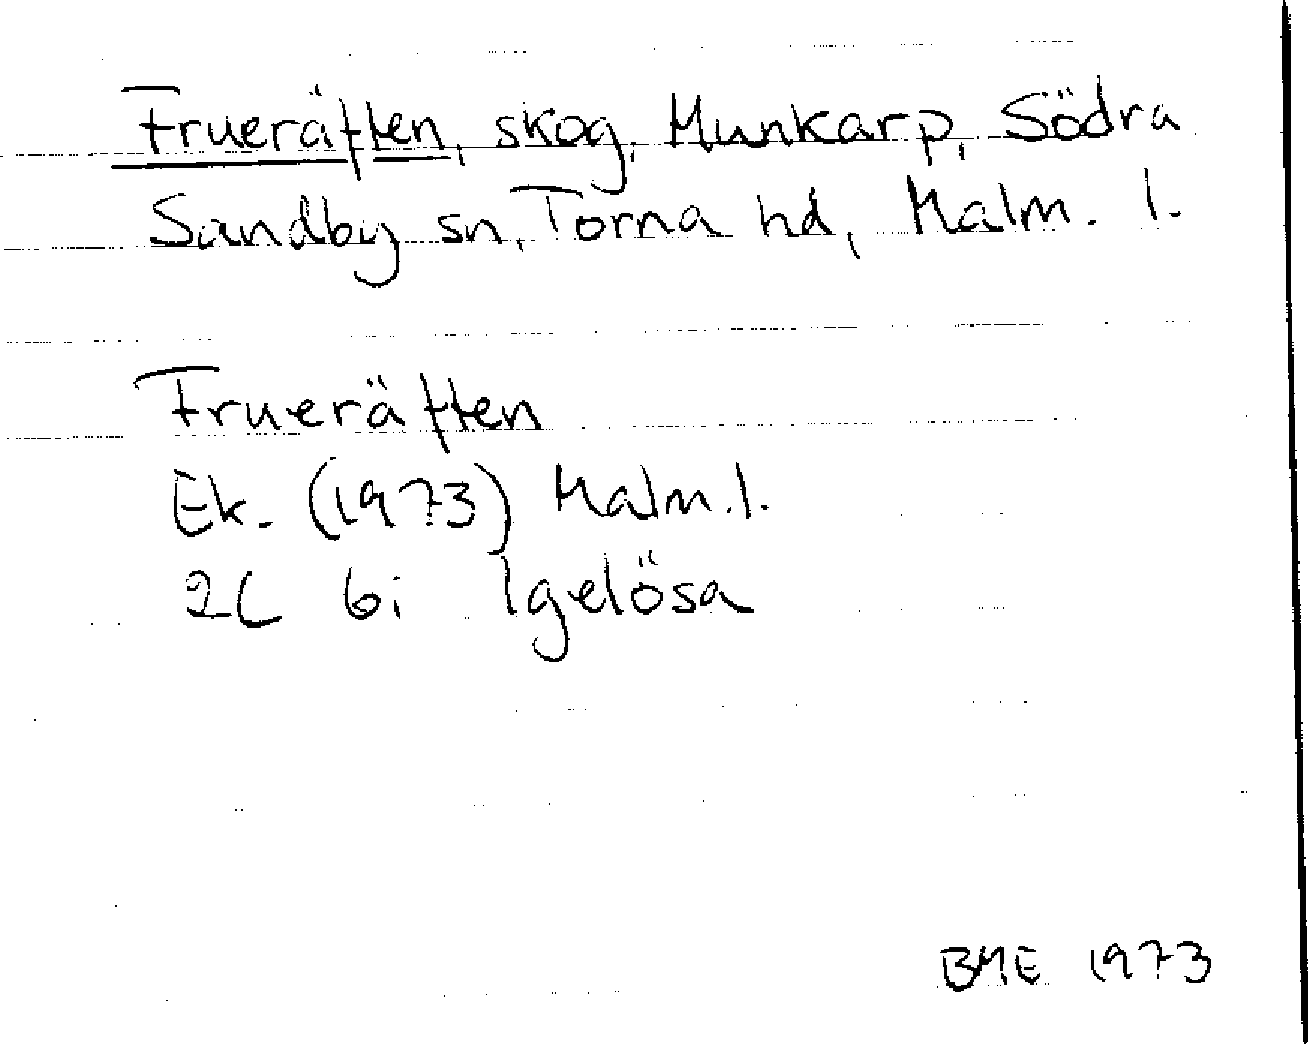 Frueräften, skog, Munkarp, Södra
Sandby sn, Torna hd, Malm. l.
Frueräften
Ek. (1973) Malm. l.
2C 6i Igelösa
BME 1973